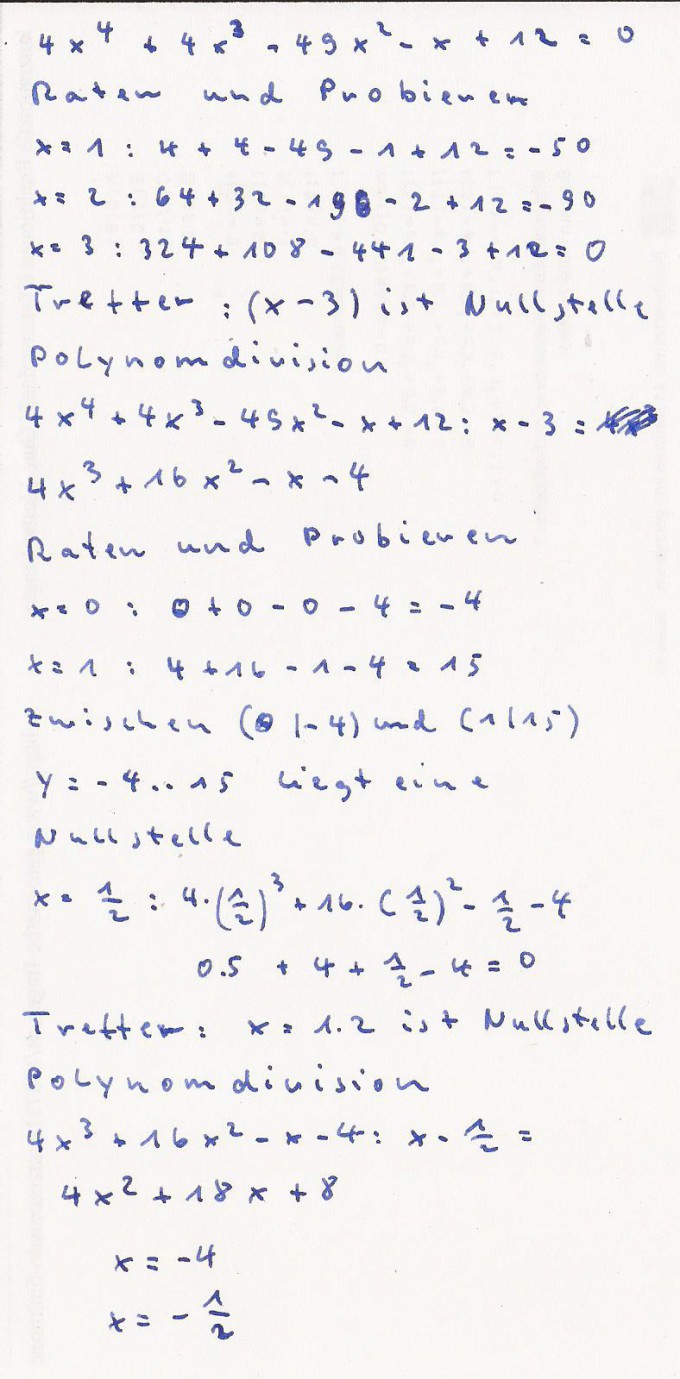 4x⁴ + 4x³ - 49x² - x + 12 = 0
Raten und Probieren
x = 1 : 4 + 4 - 49 - 1 + 12 = -50
x = 2 : 64 + 32 - 196 - 2 + 12 = -90
x = 3 : 324 + 108 - 441 - 3 + 12 = 0
Treffer : (x - 3) ist Nullstelle
Polynomdivision
4x⁴ + 4x³ - 49x² - x + 12 : x - 3 =
4x³ + 16x² - x - 4
Raten und Probieren
x = 0 : 0 + 0 - 0 - 4 = -4
x = 1 : 4 + 16 - 1 - 4 = 15
Zwischen (0 | -4) und (1 | 15)
y = -4 .. 15 liegt eine
Nullstelle
x = 1/2 : 4 · (1/2)³ + 16 · (1/2)² - 1/2 - 4
0.5 + 4 + 1/2 - 4 = 0
Treffer : x = 1.2 ist Nullstelle
Polynomdivision
4x³ + 16x² - x - 4 : x - 1/2 =
4x² + 18x + 8
x = -4
x = - 1/2